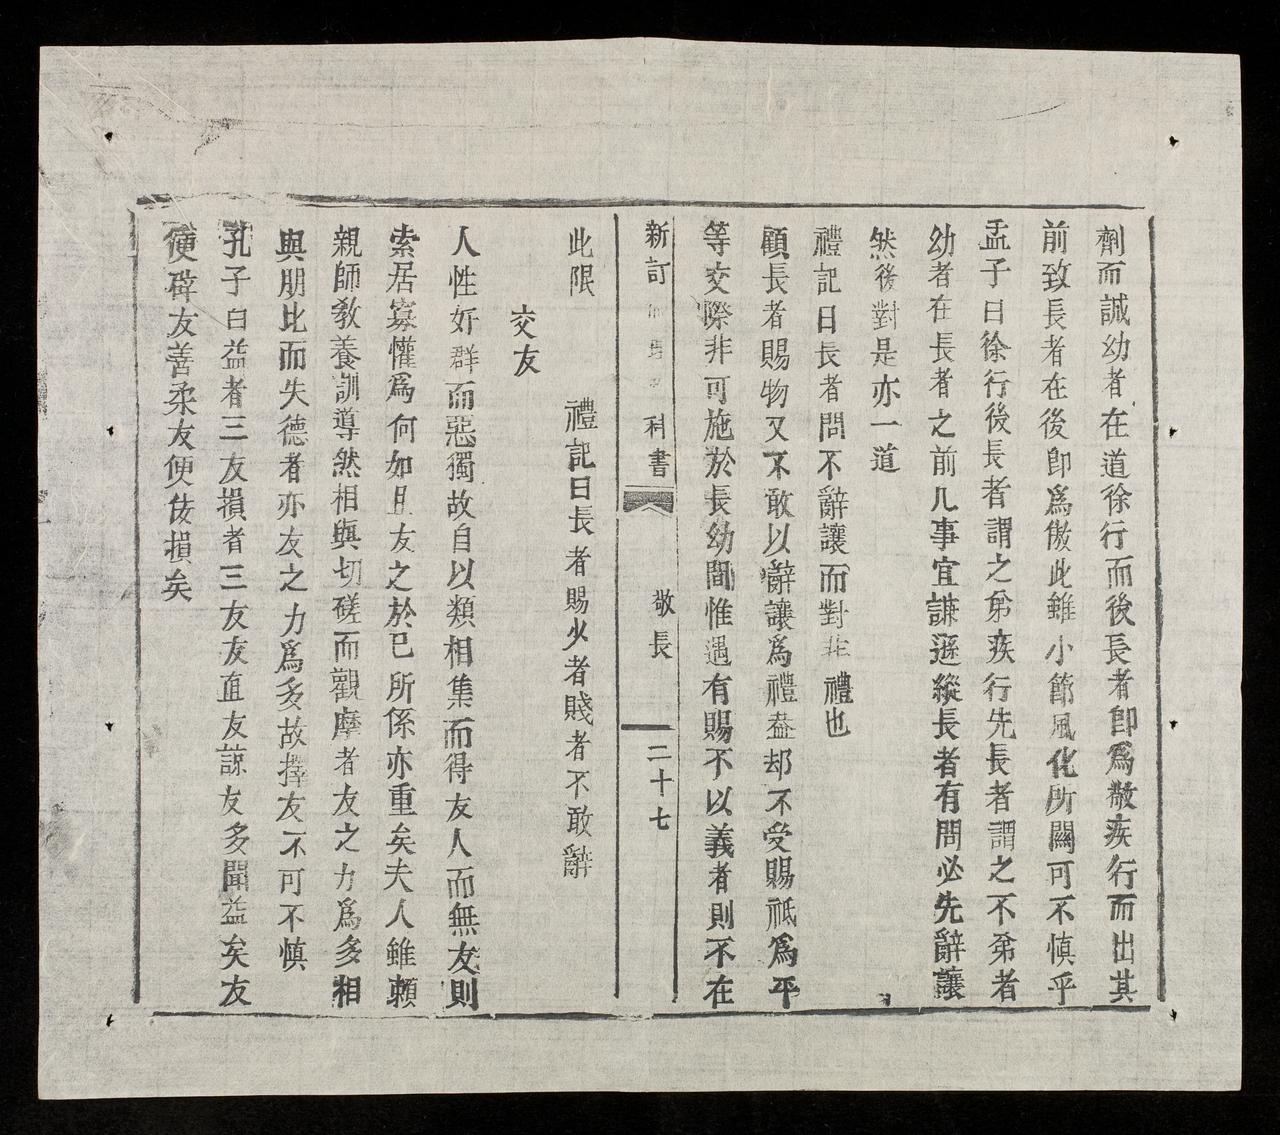 劑而誠幼者在道徐行而後長者卽爲敬疾行而出其
前致長者在後卽爲傲此雖小節風化所關可不慎乎
孟子曰徐行後長者謂之弟疾行先長者謂之不弟者
幼者在長者之前凡事宜謙遜縱長者有問必先辭讓
然後對是亦一道
禮記曰長者問不辭讓而對非禮也
顧長者賜物又不敢以辭讓爲禮葢却不受賜祗爲平
等交際非可施於長幼間惟遇有賜不以義者則不在
新訂 科書 敬長 二十七
此限 禮記曰長者賜少者賤者不敢辭
交友
人性好群而惡獨故自以類相集而得友人而無友則
索居寡懽爲何如且友之於己所係亦重矣夫人雖賴
親師敎養訓導然相與切磋而觀摩者友之力爲多相
與朋比而失德者亦友之力爲多故擇友不可不慎
孔子曰益者三友損者三友友直友諒友多聞益矣友
便辟友善柔友便佞損矣